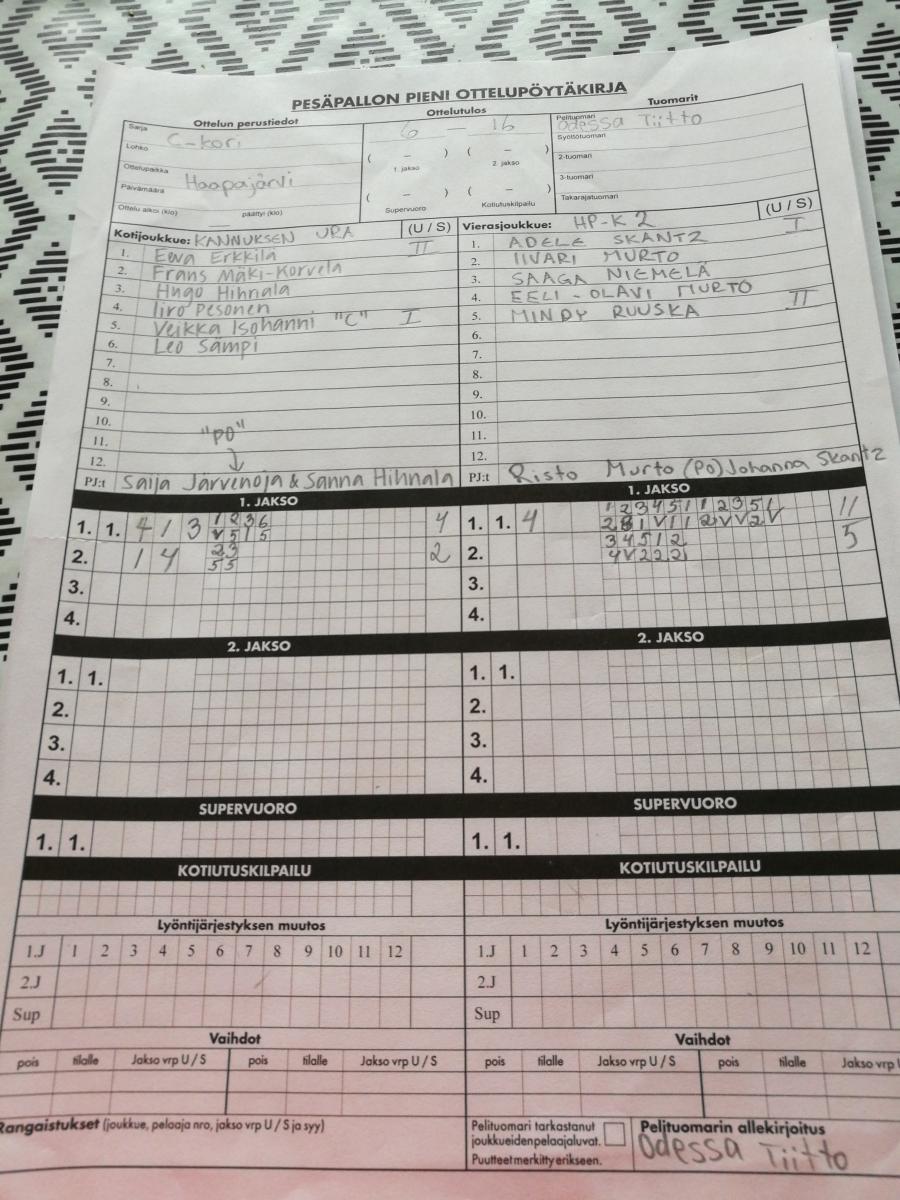 PESÄPALLON PIENI OTTELUPÖYTÄKIRJA
Ottelun perustiedot
Ottelutulos
Tuomarit
Sarja
Lohko C-kori
Ottelupaikka
Päivämäärä Haapajärvi
Ottelu alkoi (klo) päättyi (klo)
6 – 16
( – ) ( – )
1. jakso 2. jakso
( – ) ( – )
Supervuoro Kotiutuskilpailu
Pelituomari Odessa Tiitto
Syöttötuomari
2-tuomari
3-tuomari
Takarajatuomari
Kotijoukkue: KANNUKSEN URA (U / S)
1. Ewa Erkkilä II
2. Frans Mäki-Korvela
3. Hugo Hihnala
4. Iiro Pesonen
5. Veikka Isohanni "C" I
6. Leo Sämpi
7.
8.
9.
10.
11. "PO"
12.
PJ:t Saija Järvenoja & Sanna Hihnala
Vierasjoukkue: HP-K 2 (U / S)
1. ADELE SKANTZ I
2. IIVARI MURTO
3. SAAGA NIEMELÄ
4. EELI-OLAVI MURTO
5. MINDY RUUSKA II
6.
7.
8.
9.
10.
11.
12.
PJ:t Risto Murto (PO) Johanna Skantz
1. JAKSO
1. 1. 4 1 3 1 2 3 6 4
V 5 1 5
2. 1 4 2 3 2
5 5
3.
4.
1. JAKSO
1. 1. 4 1 2 3 4 5 1 1 2 3 5 1 11
2. 3 4 5 1 2 5
4 V 2 2 2
3.
4.
2. JAKSO
1. 1.
2.
3.
4.
2. JAKSO
1. 1.
2.
3.
4.
SUPERVUORO
1. 1.
SUPERVUORO
1. 1.
KOTIUTUSKILPAILU
KOTIUTUSKILPAILU
Lyöntijärjestyksen muutos
1.J 1 2 3 4 5 6 7 8 9 10 11 12
2.J
Sup
Lyöntijärjestyksen muutos
1.J 1 2 3 4 5 6 7 8 9 10 11 12
2.J
Sup
Vaihdot
pois tilalle Jakso vrp U / S pois tilalle Jakso vrp U / S
Vaihdot
pois tilalle Jakso vrp U / S pois tilalle Jakso vrp
Rangaistukset (joukkue, pelaaja nro, jakso vrp U / S ja syy)
Pelituomari tarkastanut
joukkueidenpelaajaluvat.
Puutteet merkitty erikseen.
Pelituomarin allekirjoitus
Odessa Tiitto